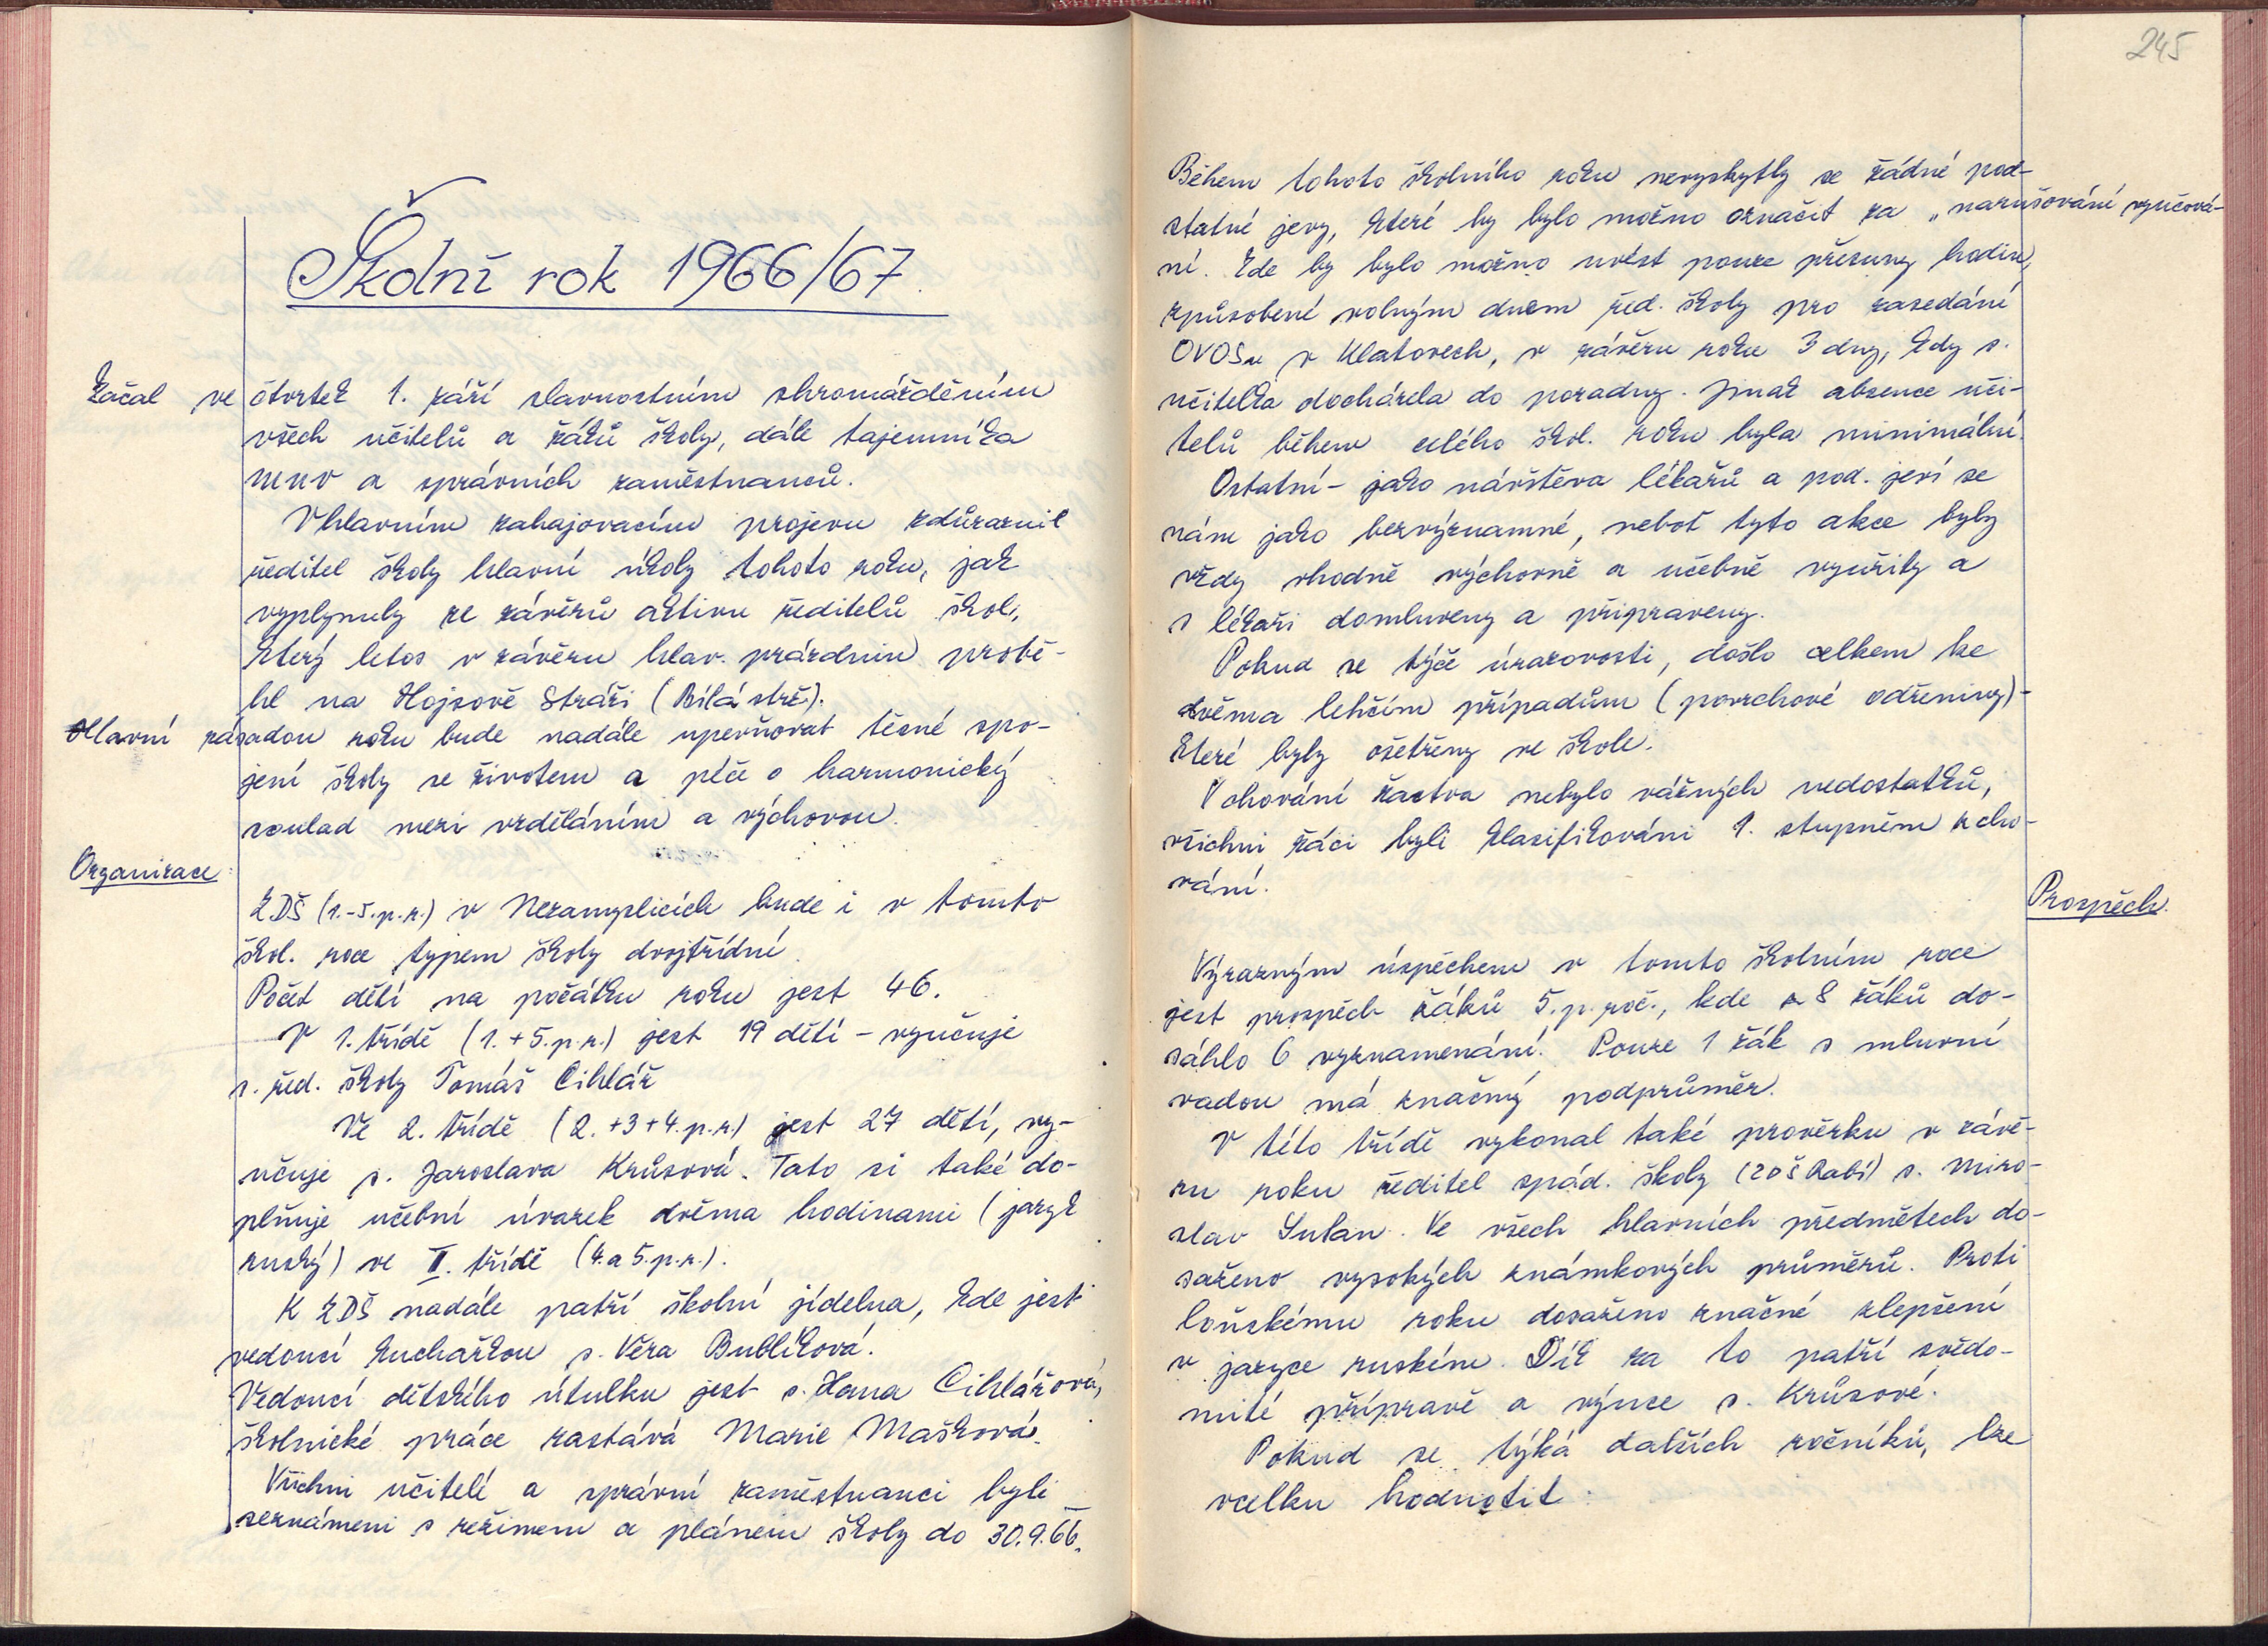 Školní rok 1966/67.
Začal ve čtvrtek 1. září slavnostním shromážděním
všech učitelů a žáků školy, dále tajemníka
MNV a správních zaměstnanců.
V hlavním zahajovacím projevu zdůraznil
ředitel školy hlavní úkoly tohoto roku, jak
vyplynuly ze závěrů aktivu ředitelů škol,
který letos v závěru hlav. prázdnin probě-
hl na Hojsově Stráži (Bílá strž).
Hlavní zásadou roku bude nadále upevňovat těsné spo-
jení školy se životem a péče o harmonický
soulad mezi vzděláním a výchovou.
Organizace:
ZDŠ (1.-5.p.r.) v Nezamyslicích bude i v tomto
škol. roce typem školy dvojtřídní.
Počet dětí na počátku roku jest 46.
V 1. třídě (1.+5.p.r.) jest 19 dětí - vyučuje
s. řed. školy Tomáš Cihlář
Ve 2. třídě (2.+3+4.p.r.) jest 27 dětí, vy-
učuje s. Jaroslava Krůsová. Tato si také do-
plňuje učební úvazek dvěma hodinami (jazyk
ruský) ve II. třídě (4.a 5.p.r.).
K ZDŠ nadále patří školní jídelna, kde jest
vedoucí kuchařkou s. Věra Bublíková.
Vedoucí dětského útulku jest s. Hana Cihlářová,
školnické práce zastává Marie Mašková.
Všichni učitelé a správní zaměstnanci byli
seznámeni s režimem a plánem školy do 30.9.66.
245
Během tohoto školního roku nevyskytly se žádné pod-
statné jevy, které by bylo možno označit za „narušování vyučová-
ní. Zde by bylo možno uvést pouze přesuny hodin,
způsobené volným dnem řed. školy pro zasedání
OVOSu v Klatovech, v závěru roku 3 dny, kdy s.
učitelka docházela do poradny. Jinak absence uči-
telů během celého škol. roku byla minimální.
Ostatní - jako návštěva lékařů a pod. jeví se
nám jako bezvýznamné, neboť tyto akce byly
vždy vhodně výchovně a učebně využity a
s lékaři domluveny a připraveny.
Pokud se týče úrazovosti, došlo celkem ke
dvěma lehčím případům (povrchové odřeniny)-
které byly ošetřeny ve škole.
V chování žactva nebylo vážných nedostatků,
všichni žáci byli klasifikováni 1. stupněm z cho-
vání.
Prospěch.
Výrazným úspěchem v tomto školním roce
jest prospěch žáků 5.p.roč., kde z 8 žáků do-
sáhlo 6 vyznamenání. Pouze 1 žák s mluvní
vadou má značný podprůměr.
V této třídě vykonal také prověrku v závě-
ru roku ředitel spád. školy (ZDŠ Rabí) s. Miro-
slav Sulan. Ve všech hlavních předmětech do-
saženo vysokých známkových průměrů. Proti
loňskému roku dosaženo značné zlepšení
v jazyce ruském. Dík za to patří svědo-
mité přípravě a výuce s. Krůsové.
Pokud se týká dalších ročníků, lze
vcelku hodnotit: